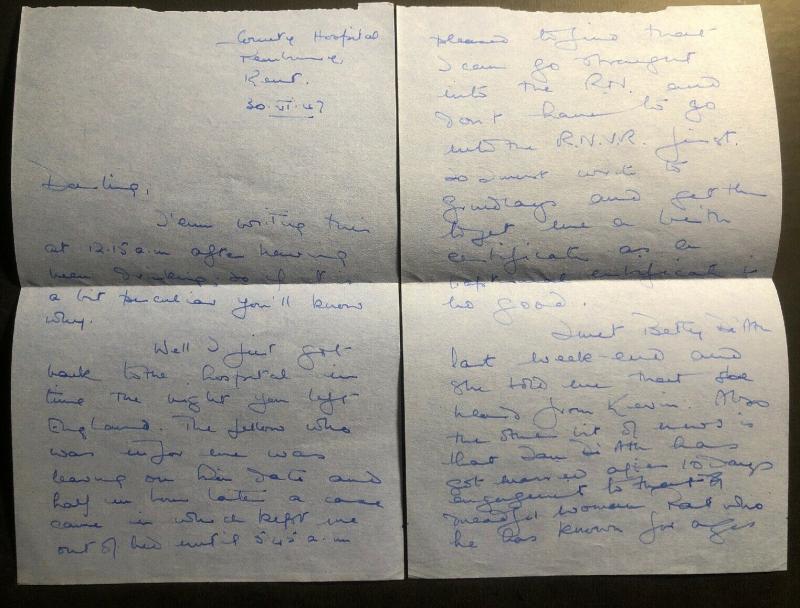 County Hospital
Kent.
30. VI. 47
Darling,
I am writing this
at 12.15 a.m after having
been drinking, so if it is
a bit peculiar you'll know
why.
Well I just got
back to the hospital in
time the night you left
England. The fellow who
was in for me was
leaving on his date and
half an hour later a case
came in which kept me
out of bed until 5.45 a.m
pleased to find that
I can go straight
into the R.N. and
don't have to go
into the R.N.V.R. first.
so I must write to
Grindlays and get them
to get me a birth
certificate as a
baptismal certificate is
no good.
I met Betty
last week-end and
she told me that she
heard from Kevin. Also
the other bit of news is
that Ian has
got married after 10 days
engagement to that
dreadful woman who
he has known for ages